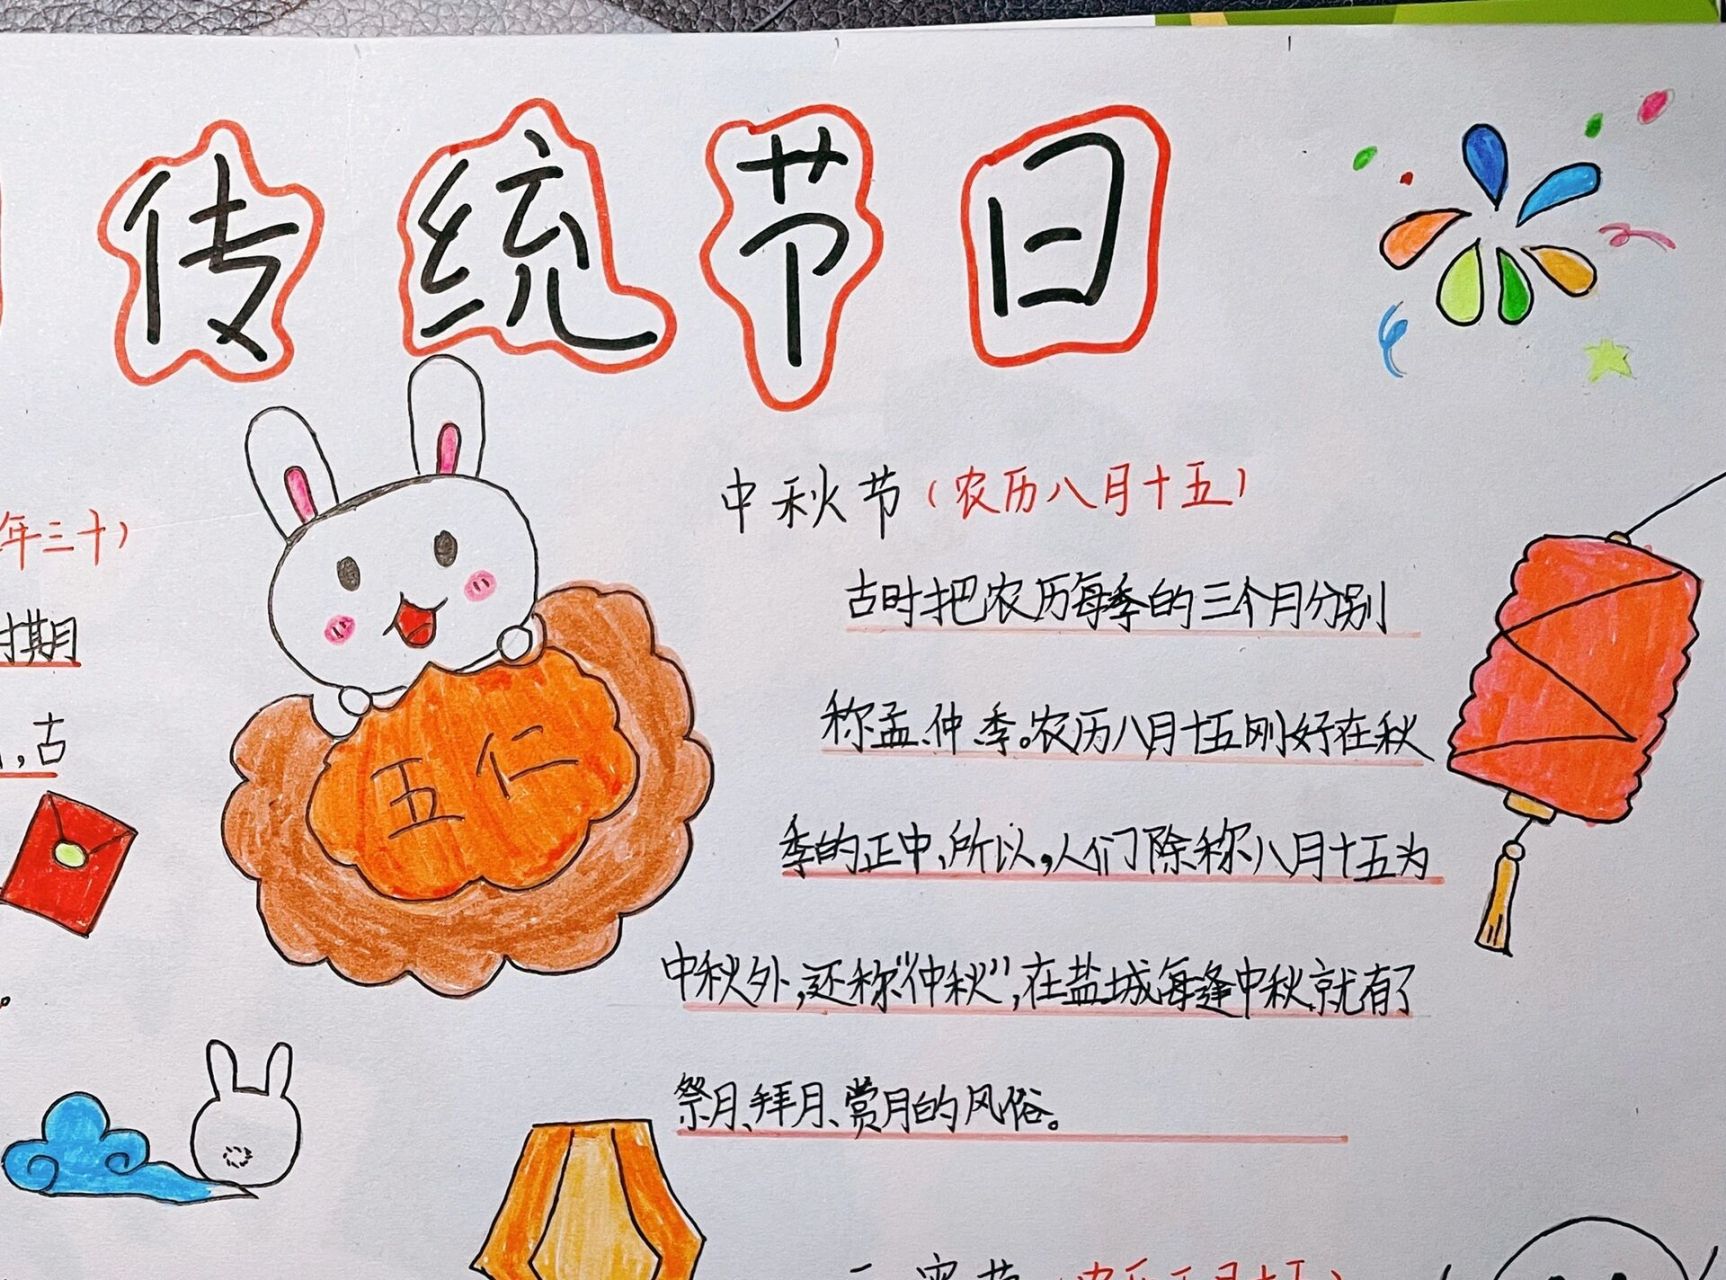 传统节日
年三十)
期
,古
五仁
中秋节(农历八月十五)
古时把农历每季的三个月分别
称孟、仲、季。农历八月十五刚好在秋
季的正中、所以,人们除称八月十五为
中秋外,还称“仲秋”,在盐城每逢中秋就有了
祭月、拜月、赏月的风俗。